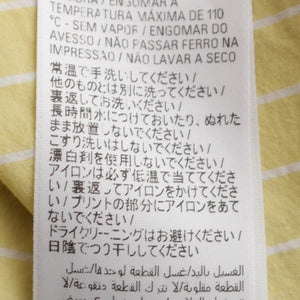 SOMBRA / ENGOMAR A
TEMPERATURA MÁXIMA DE 110
°C - SEM VAPOR / ENGOMAR DO
AVESSO / NÃO PASSAR FERRO NA
IMPRESSÃO / NÃO LAVAR A SECO
常温で手洗いしてください/
他のものとは別に洗ってください
/ 裏返してお洗いください/
長時間水につけておいたり、ぬれた
まま放置しないでください/
こすり洗いはしないでください/
漂白剤を使用しないでください
/ アイロンは必ず低温で当ててくだ
さい / 裏返してアイロンをかけてくだ
さい / プリントの部分にアイロンをあ
てないでください /
ドライクリーニングはお避けください/
日陰でつり干ししてください
الغسيل باليد/ تغسل القطعة لوحدها/ تغسل
القطعة مقلوبة/ لا تترك القطعة منقوعة/ لا